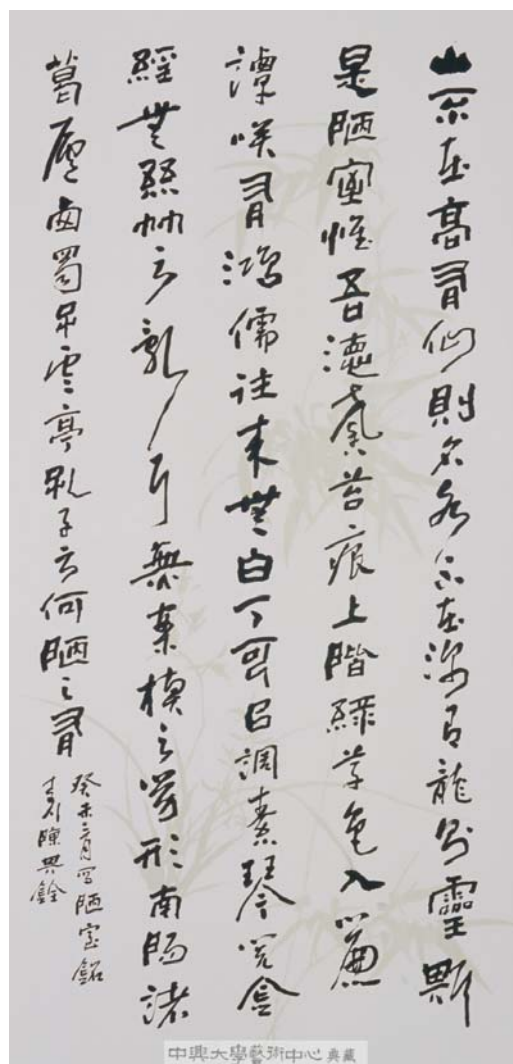 山不在高有仙則名水不在深有龍則靈斯
是陋室惟吾德馨苔痕上階綠草色入簾
譚咲有鴻儒往来無白丁可以調素琴閱金
經無絲竹之亂耳無案牘之勞形南陽諸
葛廬西蜀子雲亭孔子云何陋之有
癸未 月 陋室銘
陳興銓
中興大學藝術中心 典藏